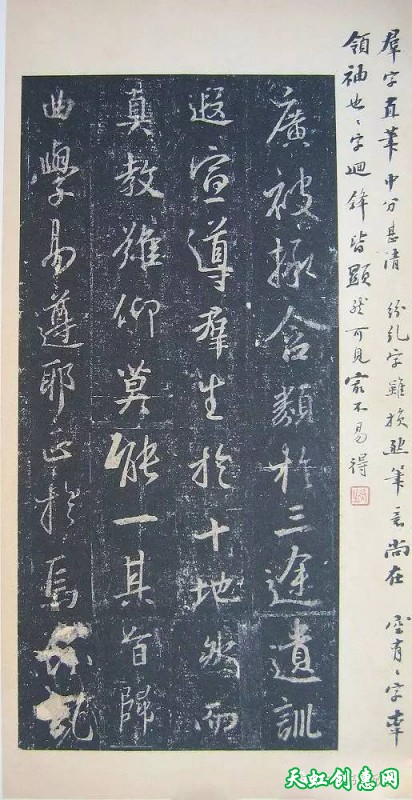 羣字直筆中分甚清 紛糺字雖損然筆意尚在 空有之字
領袖也之字迴鋒皆顯然可見㝡不易得
廣被拯含類於三途遺訓
遐宣導羣生於十地然而
真教難仰莫能一其旨歸
曲學易遵耶正於焉紛糺
天虹创意网